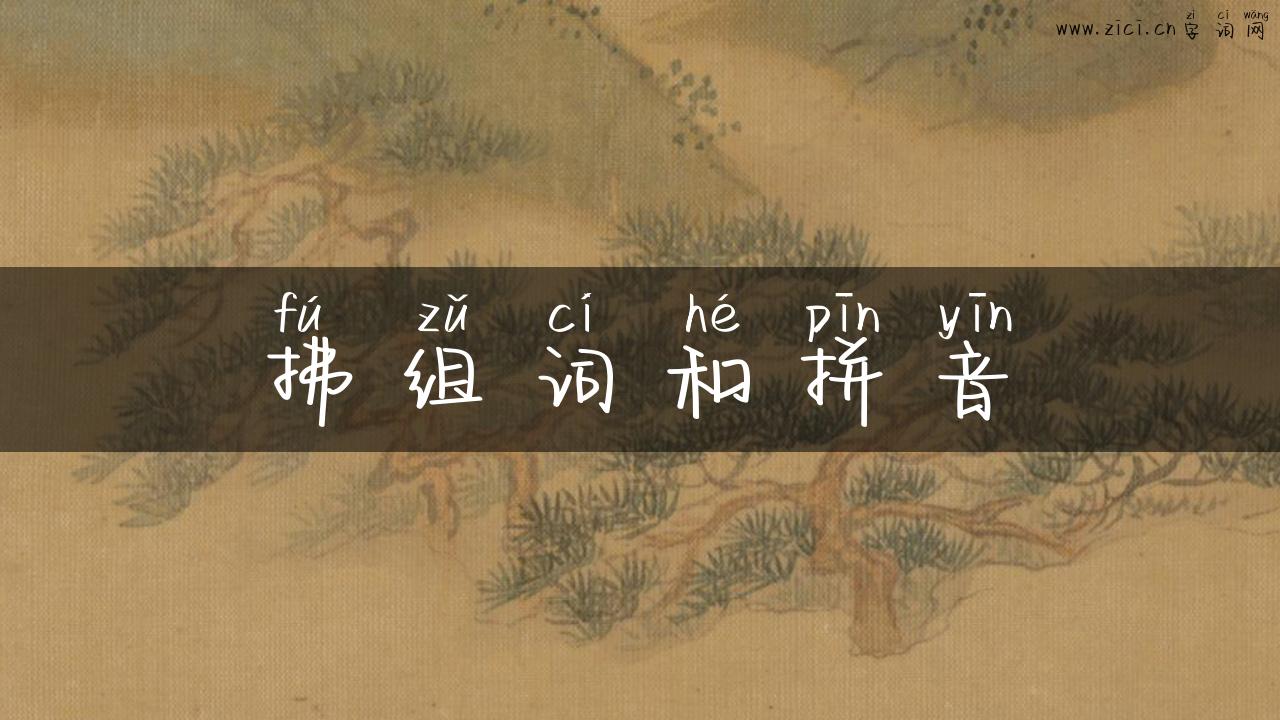 zì cí wǎng
www.zīcī.cn 字词网
fú zǔ cí hé pīn yīn
拂组词和拼音